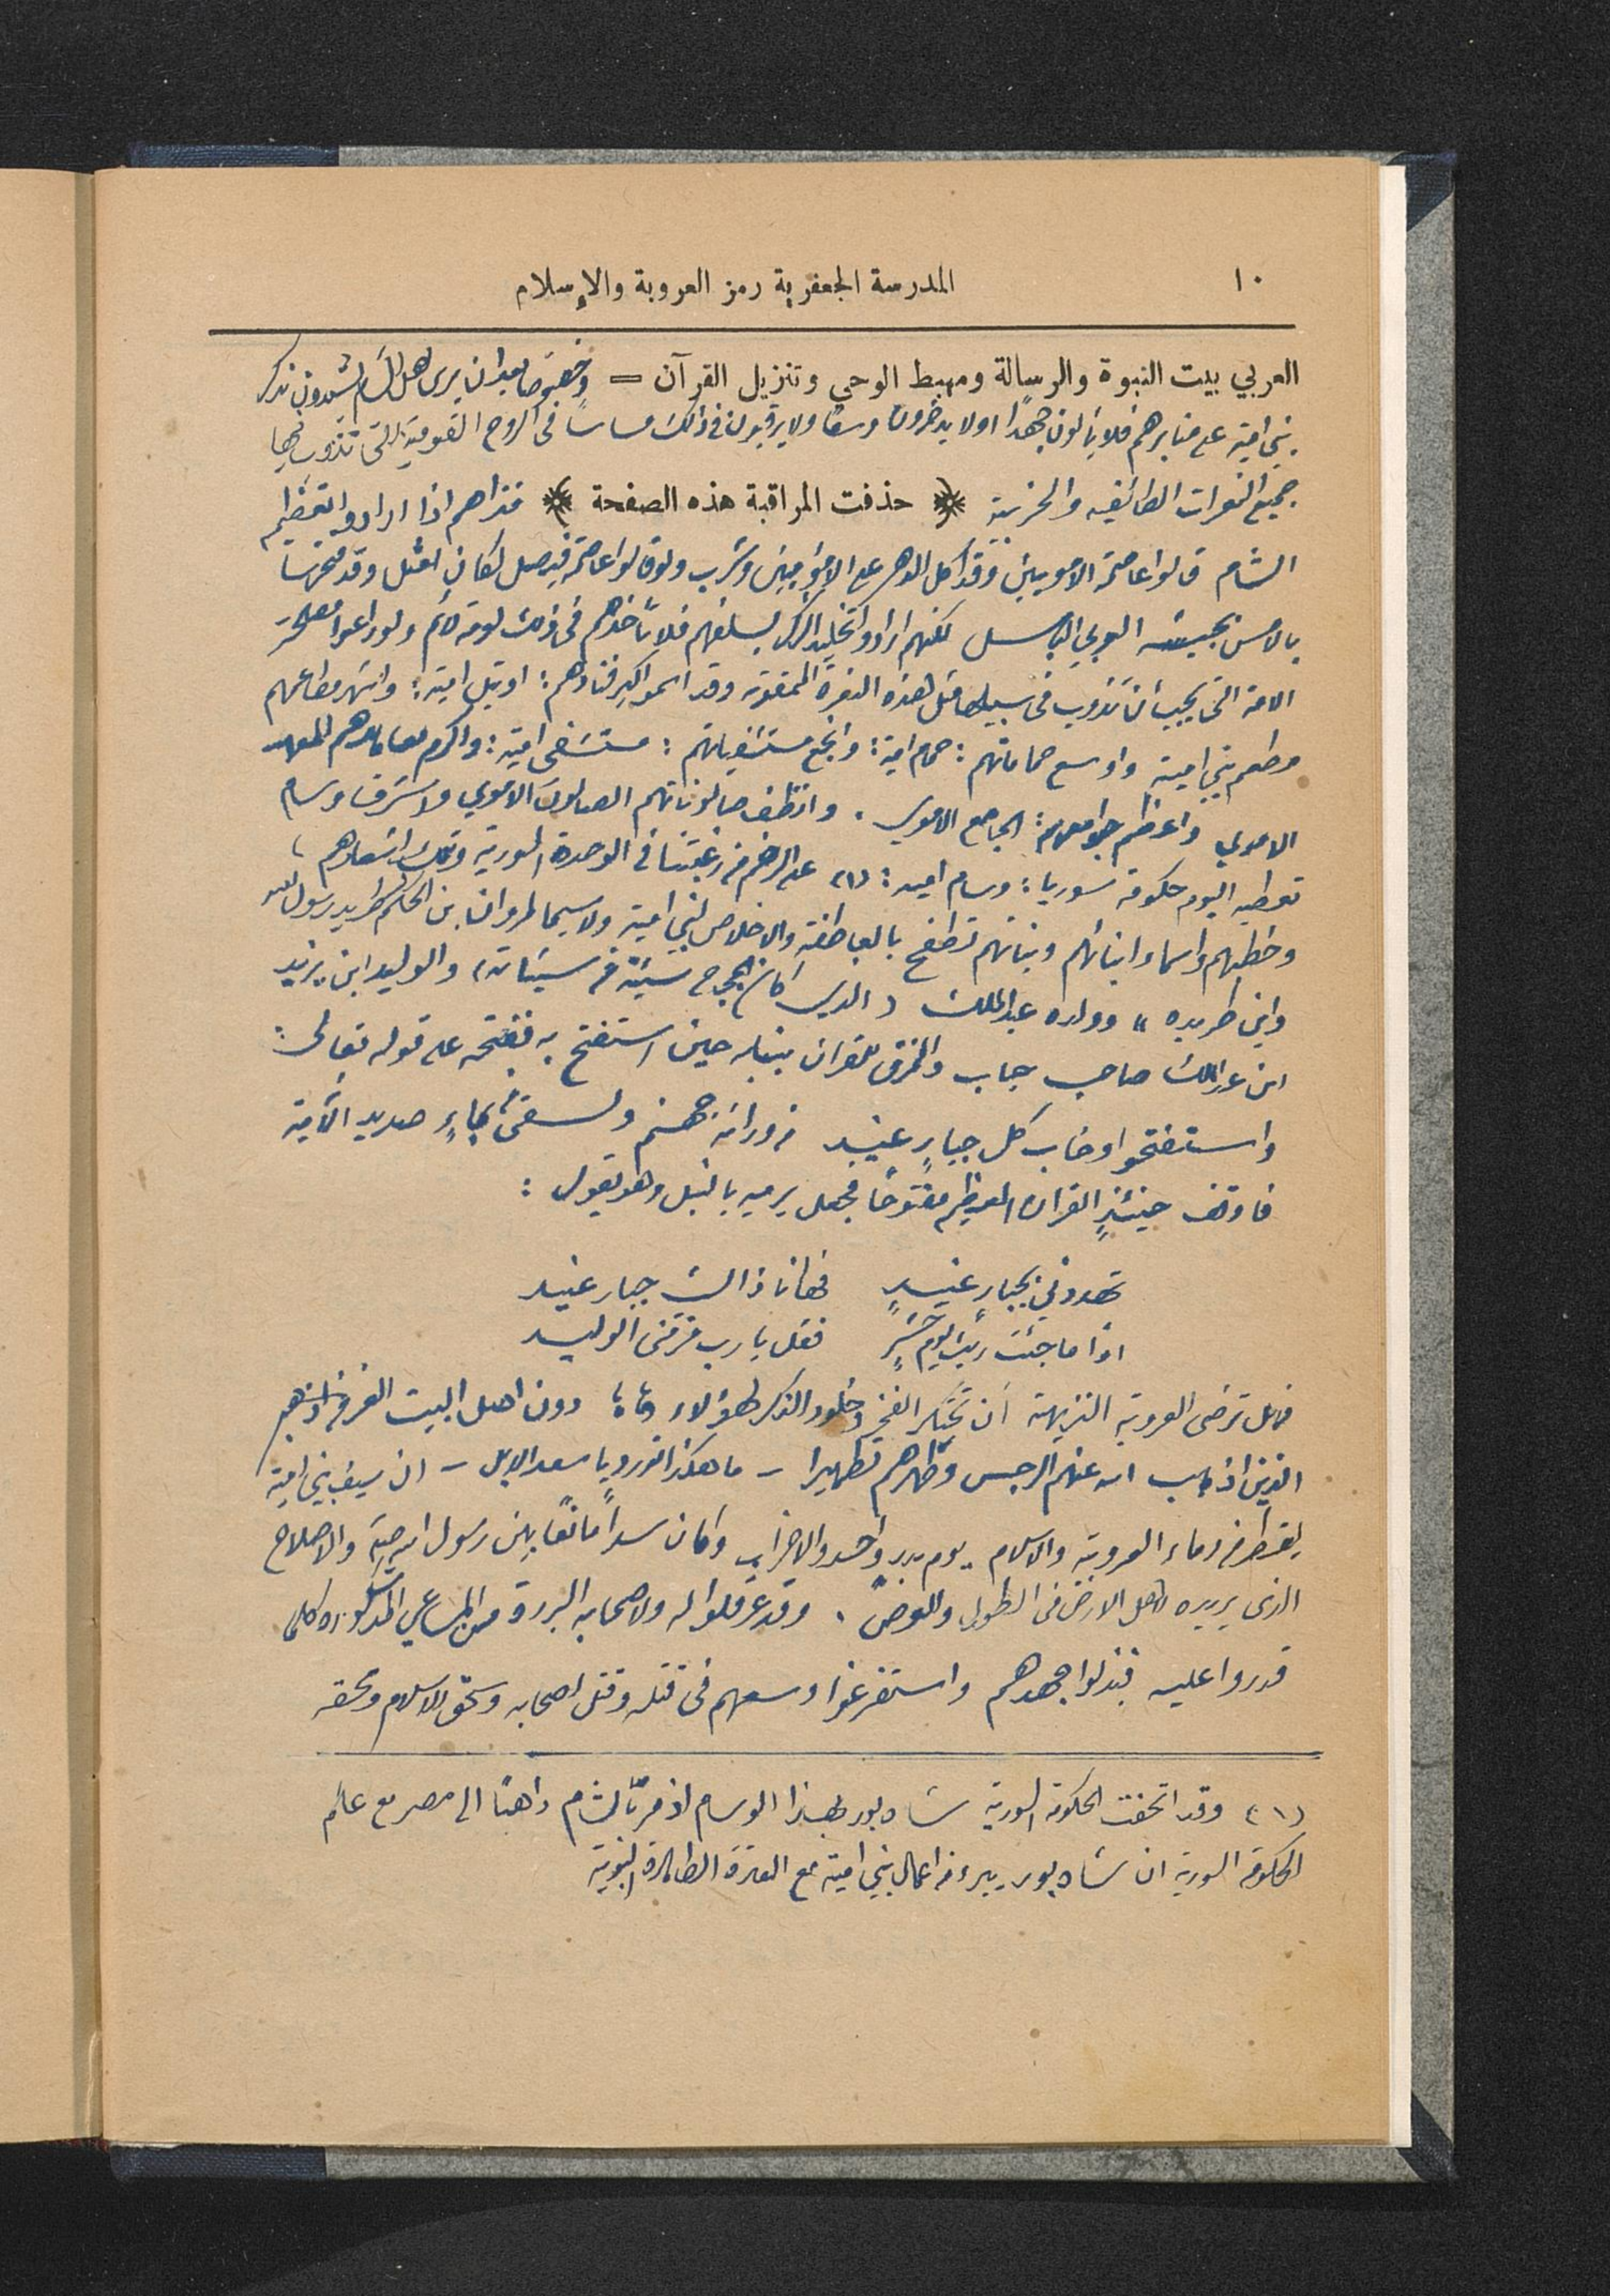 ١٠ المدرسة الجعفرية رمز العروبة والإسلام
العربي بيت النبوة والرسالة ومهبط الوحي وتنزيل القرآن = وخصوصًا بعد ان يرى اهل الشام يشيدون بذكر
بني امية على منابرهم فلا يألون جهدًا ولا يدخرون وسعًا ولا يرقبون في ذلك مساسًا في الروح القومية التي تذوب فيها
جميع النعرات الطائفيه والحزبية ❋ حذفت المراقبة هذه الصفحة ❋ فتراهم اذا ارادوا تعظيم
الشام قالوا عاصمة الامويين وقد اكل الدهر على الامويين وشرب ولو قالوا عاصمة فيصل لكان امثل وقد فتحها
بالامس بجيشه العربي الباسل لكنهم ارادوا تخليد الذكر لسلفهم فلا تأخذهم في ذلك لومة لائم ولو راعوا مصلحة
الامة التي يجب أن تذوب في سبيلها مثل هذه النعرة الممقوتة وقد اسموا اكبر فنادقهم: اوتيل امية: واشهر مطاعمهم
مطعم بني امية واوسع حماماتهم: حمام امية: وانجع مستشفياتهم: مستشفى امية: واكرم معاهدهم المعهد
الاموي واعظم جوامعهم: الجامع الاموي. وانظف صالوناتهم الصالون الاموي واشرف وسام
تعطيه اليوم حكومة سوريا: وسام امية: (١) على الرغم من رغبتنا في الوحدة السورية وتلك اشعارهم،
وخطبهم واسماء ابنائهم وبناتهم تطفح بالعاطفة والاخلاص لبني امية ولا سيما لمروان بن الحكم طريد رسول الله
وابن طريده » وولده عبد الملك (الذي كان الحجاج سيئة من سيئاته) والوليد ابن يزيد
ابن عبد الملك صاحب حبابه والممزق للقرآن بنبله حين استفتح به ففتحه على قوله تعالى:
واستفتحوا وخاب كل جبارٍ عنيد من ورائه جهنم ويسقى من ماءٍ صديد الآية
فاوقف حينئذٍ القرآن العظيم مفتوحًا فجعل يرميه بالنبل وهو يقول:
تهددني بجبار عنيدٍ فها انا ذاك جبار عنيد
اذا ما جئت ربك يوم حشرٍ فقل يا رب مزقني الوليد
فهل ترضى العروبة النزيهة أن تحتكر الفخر وخلود الذكر لهؤلاء دون اهل البيت
الذين اذهب الله عنهم الرجس وطهرهم تطهيرا – ما هكذا تورد يا سعد الابل – ان سيف بني امية
يقطر من دماء العروبة والاسلام يوم بدر واحد والاحزاب وكان سدًا مانعًا بين رسول الله والاصلاح
الذي يريده لاهل الارض في الطول والعرض. وقد عرقلوا له ولاصحابه البررة من المساعي المشكورة كلما
قدروا عليه فبذلوا جهدهم واستفرغوا وسعهم في قتله وقتل اصحابه وسحق الاسلام ومحقه
(١) وقد اتحفت الحكومة السورية شاه بور بهذا الوسام اذ مر بالشام ذاهبًا الى مصر مع علم
الحكومة السورية ان شاه بور يبرء من اعمال بني امية مع العترة الطاهرة النبوية